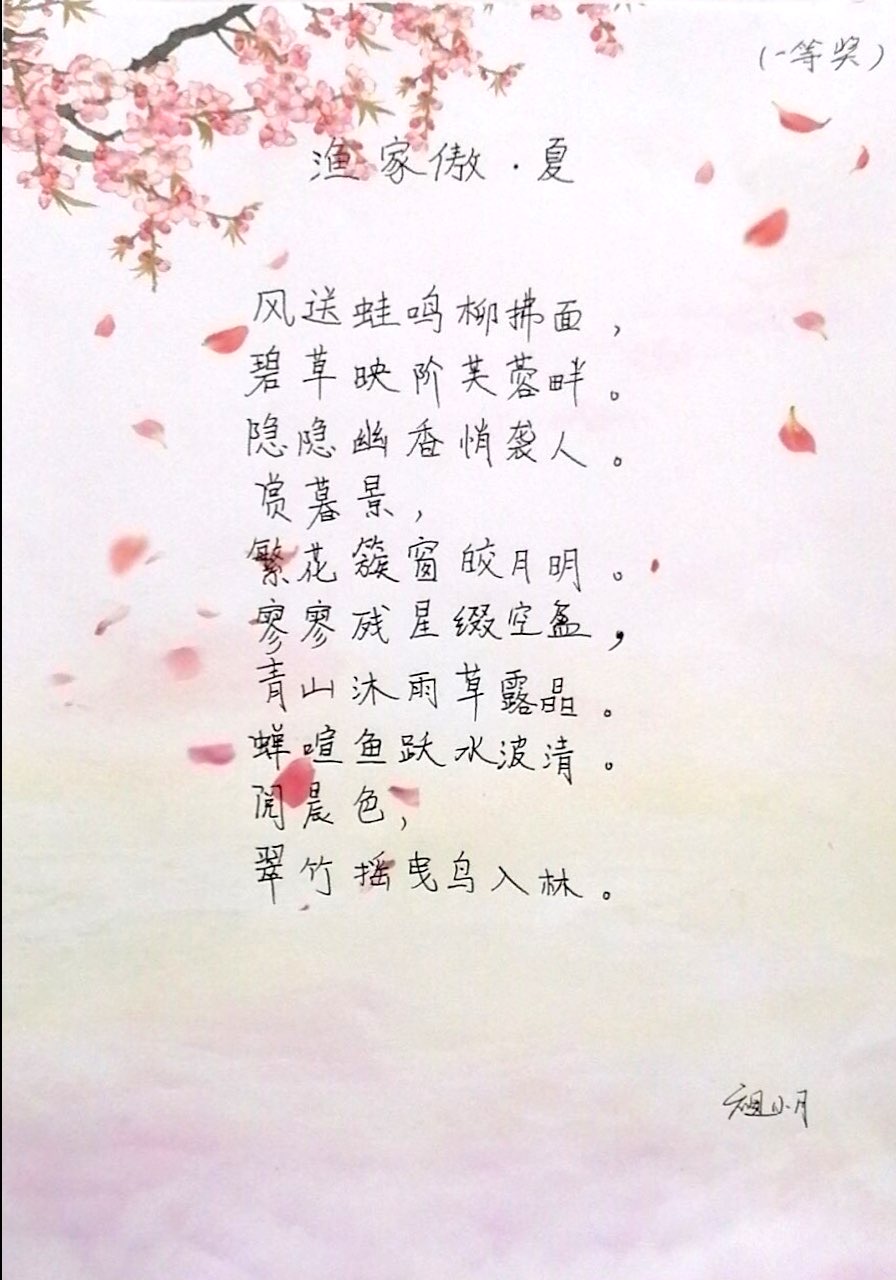 (一等奖)
渔家傲·夏
风送蛙鸣柳拂面，
碧草映阶芙蓉畔。
隐隐幽香悄袭人。
赏暮景，
繁花簇窗皎月明。
寥寥残星缀空盈，
青山沐雨草露晶。
蝉喧鱼跃水波清。
阅晨色，
翠竹摇曳鸟入林。
小月